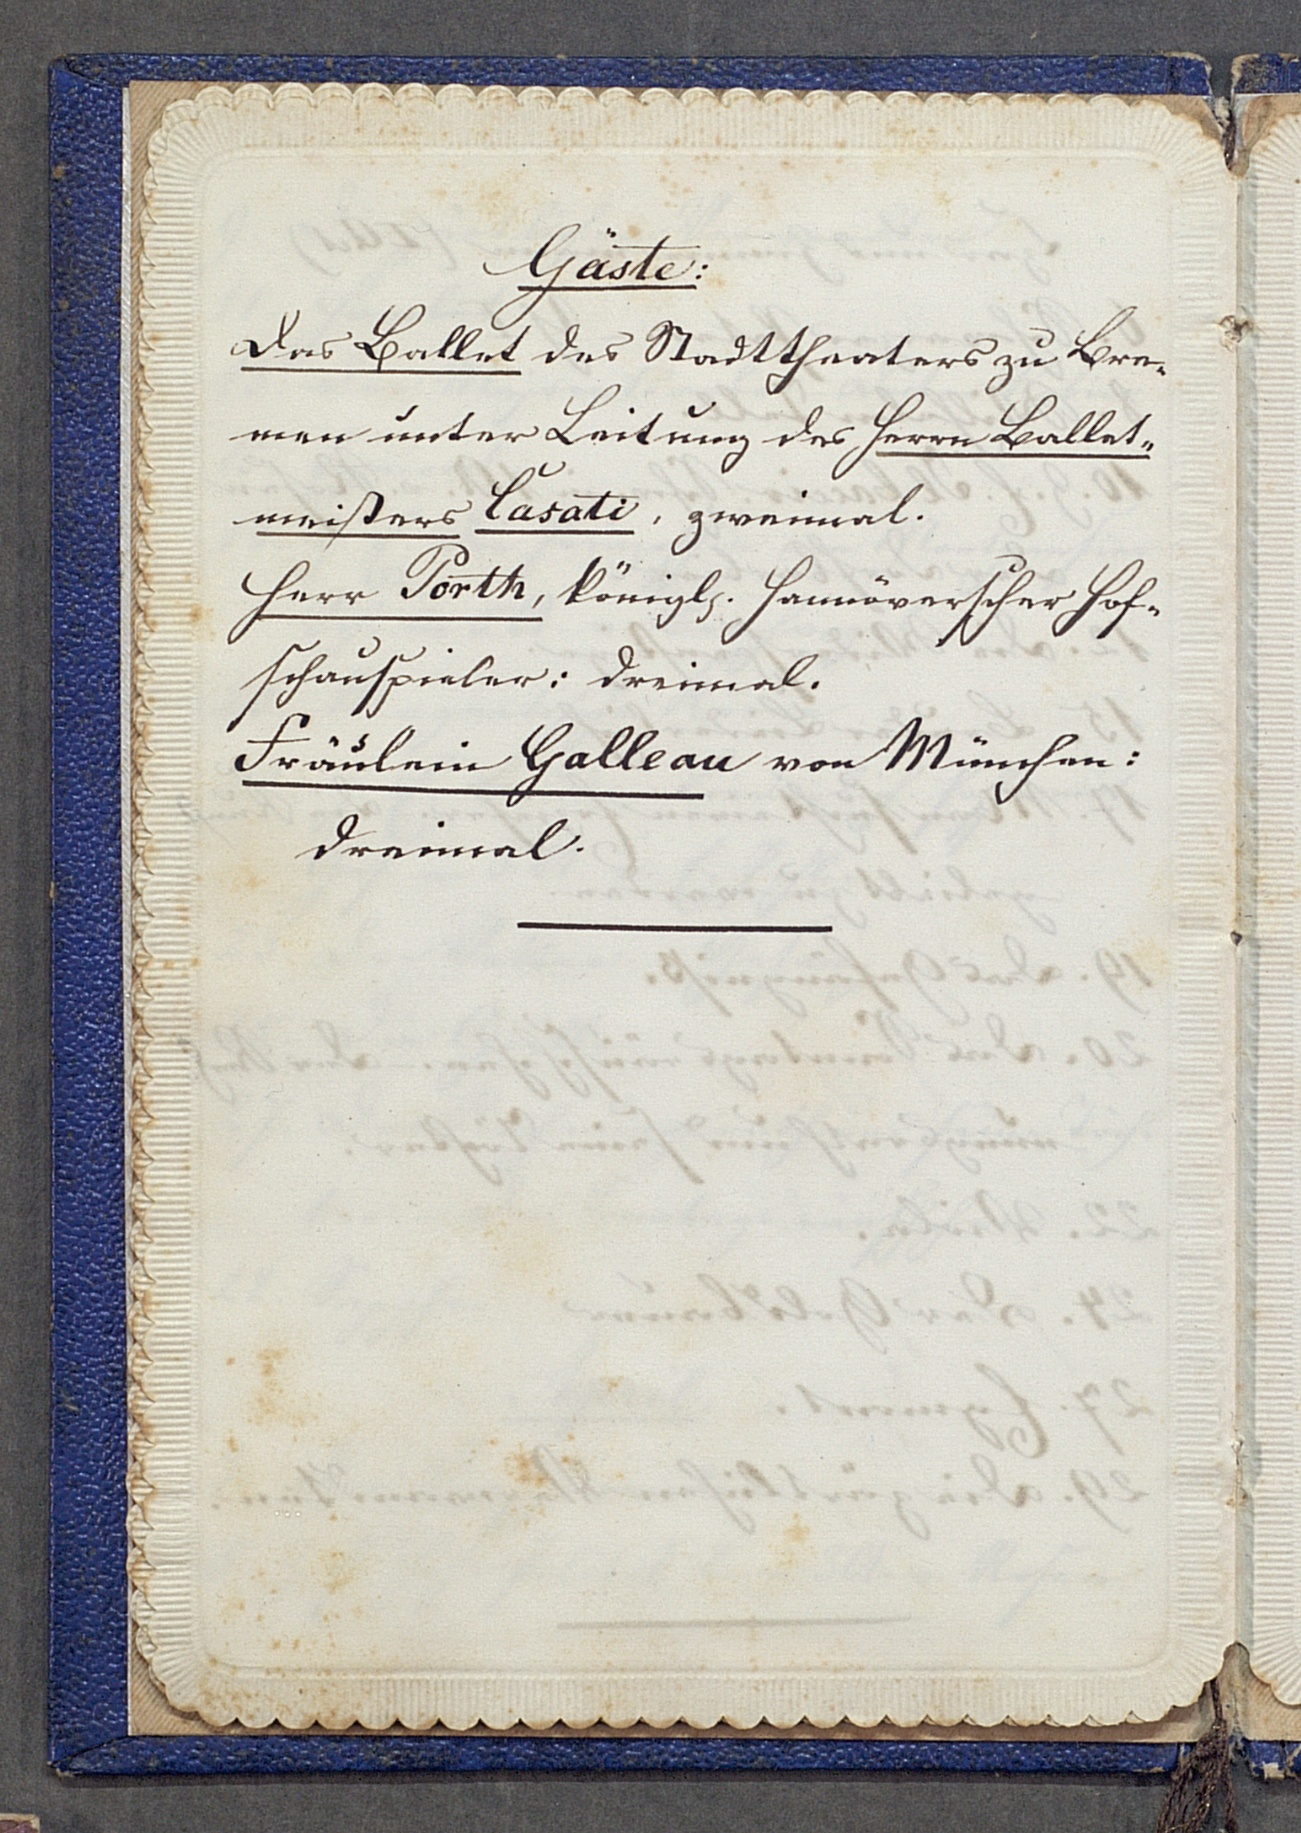 Gäste:
Das Ballet des Stadttheaters zu Bre-
men unter Leitung des Herrn Ballet-
meisters Casati, zweimal.
Herr Porth, königl. Hannöverscher Hof-
schauspieler: dreimal.
Fräulein Galleau von München:
dreimal.